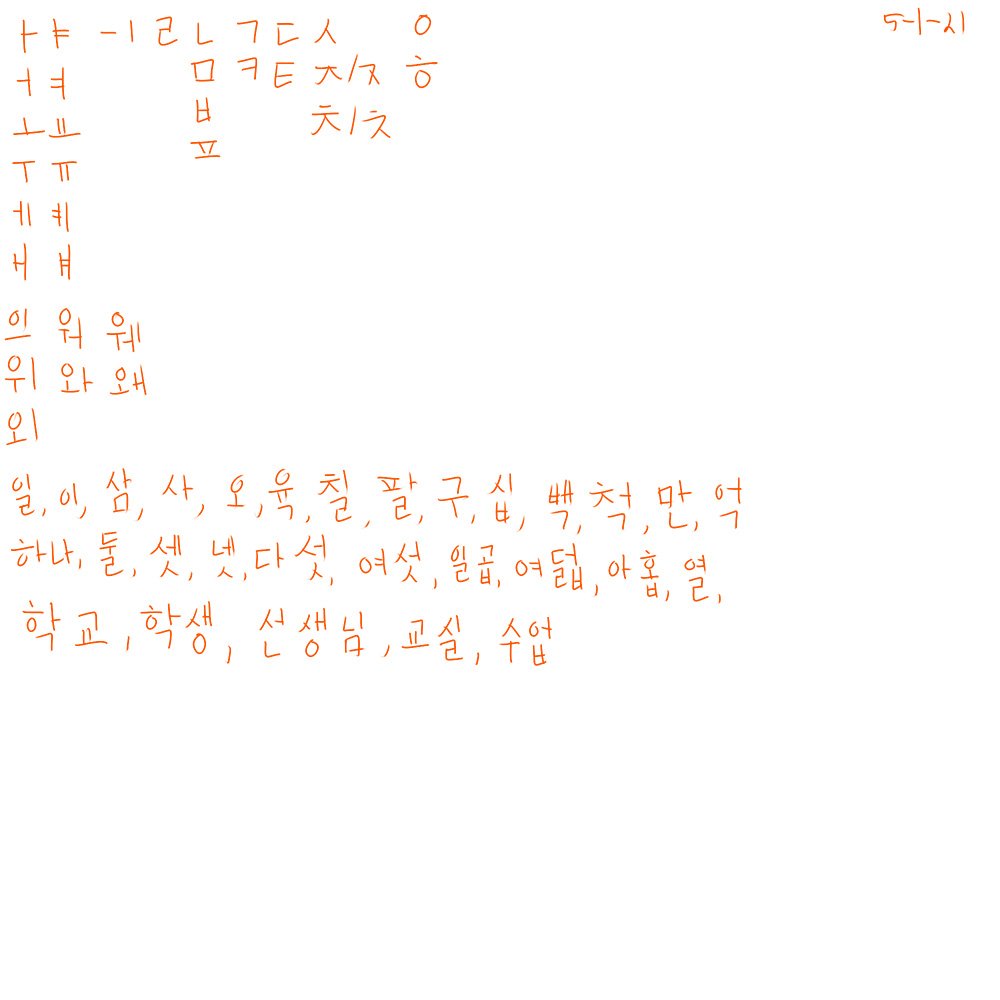 ㅏ ㅑ ㅡ ㅣ ㄹ ㄴ ㄱ ㄷ ㅅ ㅇ 5-1-21
ㅓ ㅕ ㅁ ㅋ ㅌ ㅈ/ㅈ ㅎ
ㅗ ㅛ ㅂ ㅊ/ㅊ
ㅜ ㅠ ㅍ
ㅔ ㅖ
ㅐ ㅒ
의 워 웨
위 와 왜
외
일, 이, 삼, 사, 오, 육, 칠, 팔, 구, 십, 백, 척, 만, 억
하나, 둘, 셋, 넷, 다섯, 여섯, 일곱, 여덟, 아홉, 열,
학교, 학생, 선생님, 교실, 수업